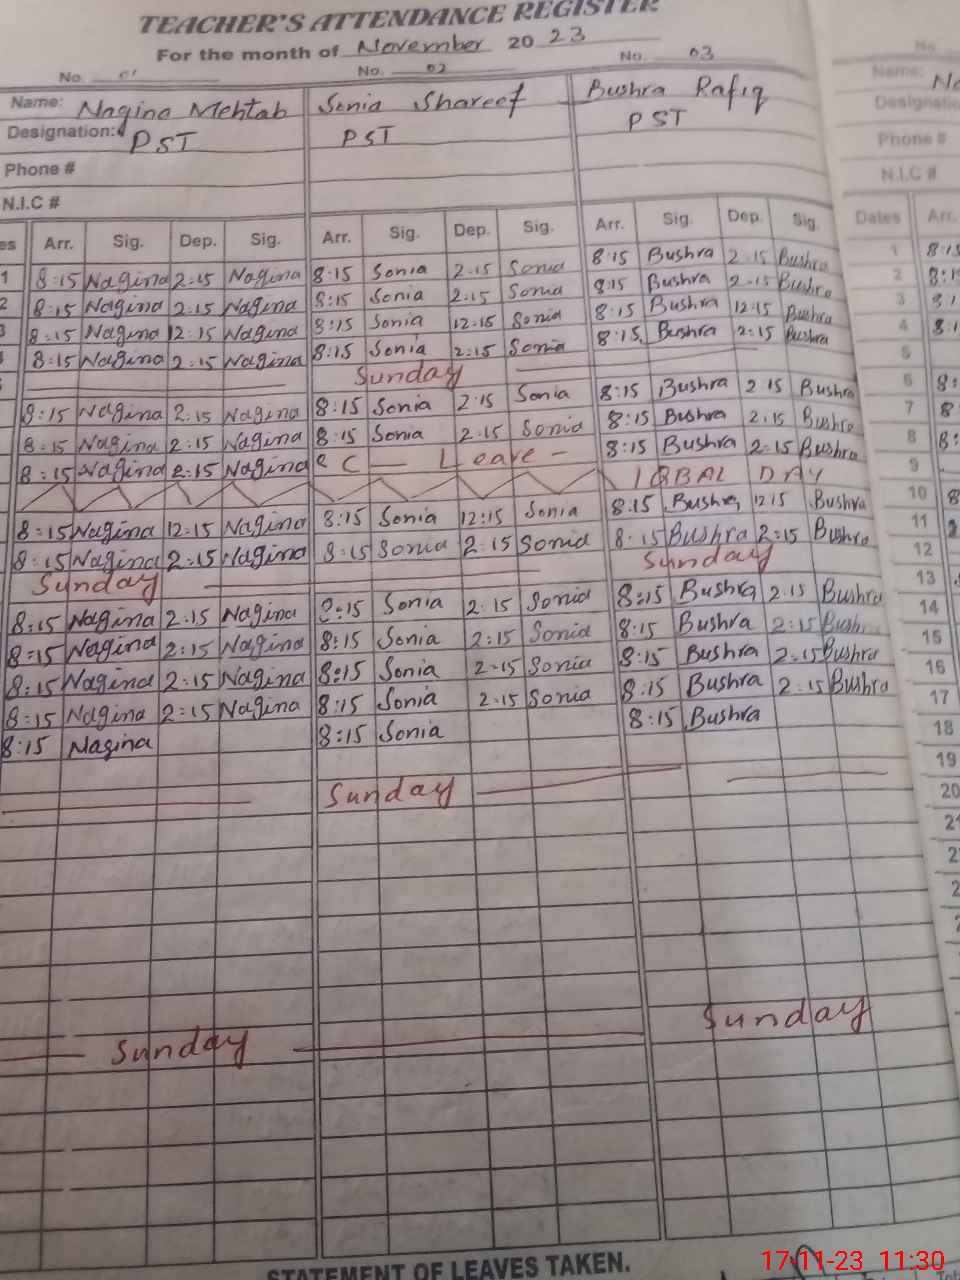 TEACHER'S ATTENDANCE REGISTER
For the month of November 2023
No. 01 No. 02 No. 03
Name: Nagina Mehtab Sonia Shareef Bushra Rafiq Name: Na
Designation: PST PST PST Designatio
Phone # Phone #
N.I.C # N.I.C #
es Arr. Sig. Dep. Sig. Arr. Sig. Dep. Sig. Arr. Sig. Dep. Sig. Dates Arr.
1 8:15 Nagina 2:15 Nagina 8:15 Sonia 2:15 Sonia 8:15 Bushra 2:15 Bushra 1 8:15
2 8:15 Nagina 2:15 Nagina 8:15 Sonia 2:15 Sonia 8:15 Bushra 2:15 Bushra 2 8:1
3 8:15 Nagina 12:15 Nagina 8:15 Sonia 12:15 Sonia 8:15 Bushra 12:15 Bushra 3 8:1
8:15 Nagina 2:15 Nagina 8:15 Sonia 2:15 Sonia 8:15 Bushra 2:15 Bushra 4 8:1
Sunday 5
8:15 Nagina 2:15 Nagina 8:15 Sonia 2:15 Sonia 8:15 Bushra 2:15 Bushra 6 8:
8:15 Nagina 2:15 Nagina 8:15 Sonia 2:15 Sonia 8:15 Bushra 2:15 Bushra 7 8
8:15 Nagina 2:15 Nagina C — Leave - 8:15 Bushra 2:15 Bushra 8 8:
IQBAL DAY 9
8:15 Nagina 12:15 Nagina 8:15 Sonia 12:15 Sonia 8:15 Bushra 12:15 Bushra 10 8
8:15 Nagina 2:15 Nagina 8:15 Sonia 2:15 Sonia 8:15 Bushra 2:15 Bushra 11
Sunday Sunday 12
8:15 Nagina 2:15 Nagina 8:15 Sonia 2:15 Sonia 8:15 Bushra 2:15 Bushra 13
8:15 Nagina 2:15 Nagina 8:15 Sonia 2:15 Sonia 8:15 Bushra 2:15 Bushra 14
8:15 Nagina 2:15 Nagina 8:15 Sonia 2:15 Sonia 8:15 Bushra 2:15 Bushra 15
8:15 Nagina 2:15 Nagina 8:15 Sonia 2:15 Sonia 8:15 Bushra 2:15 Bushra 16
8:15 Nagina 8:15 Sonia 8:15 Bushra 17
18
19
Sunday 20
21
2
2
Sunday Sunday
STATEMENT OF LEAVES TAKEN.
17-11-23 11:30